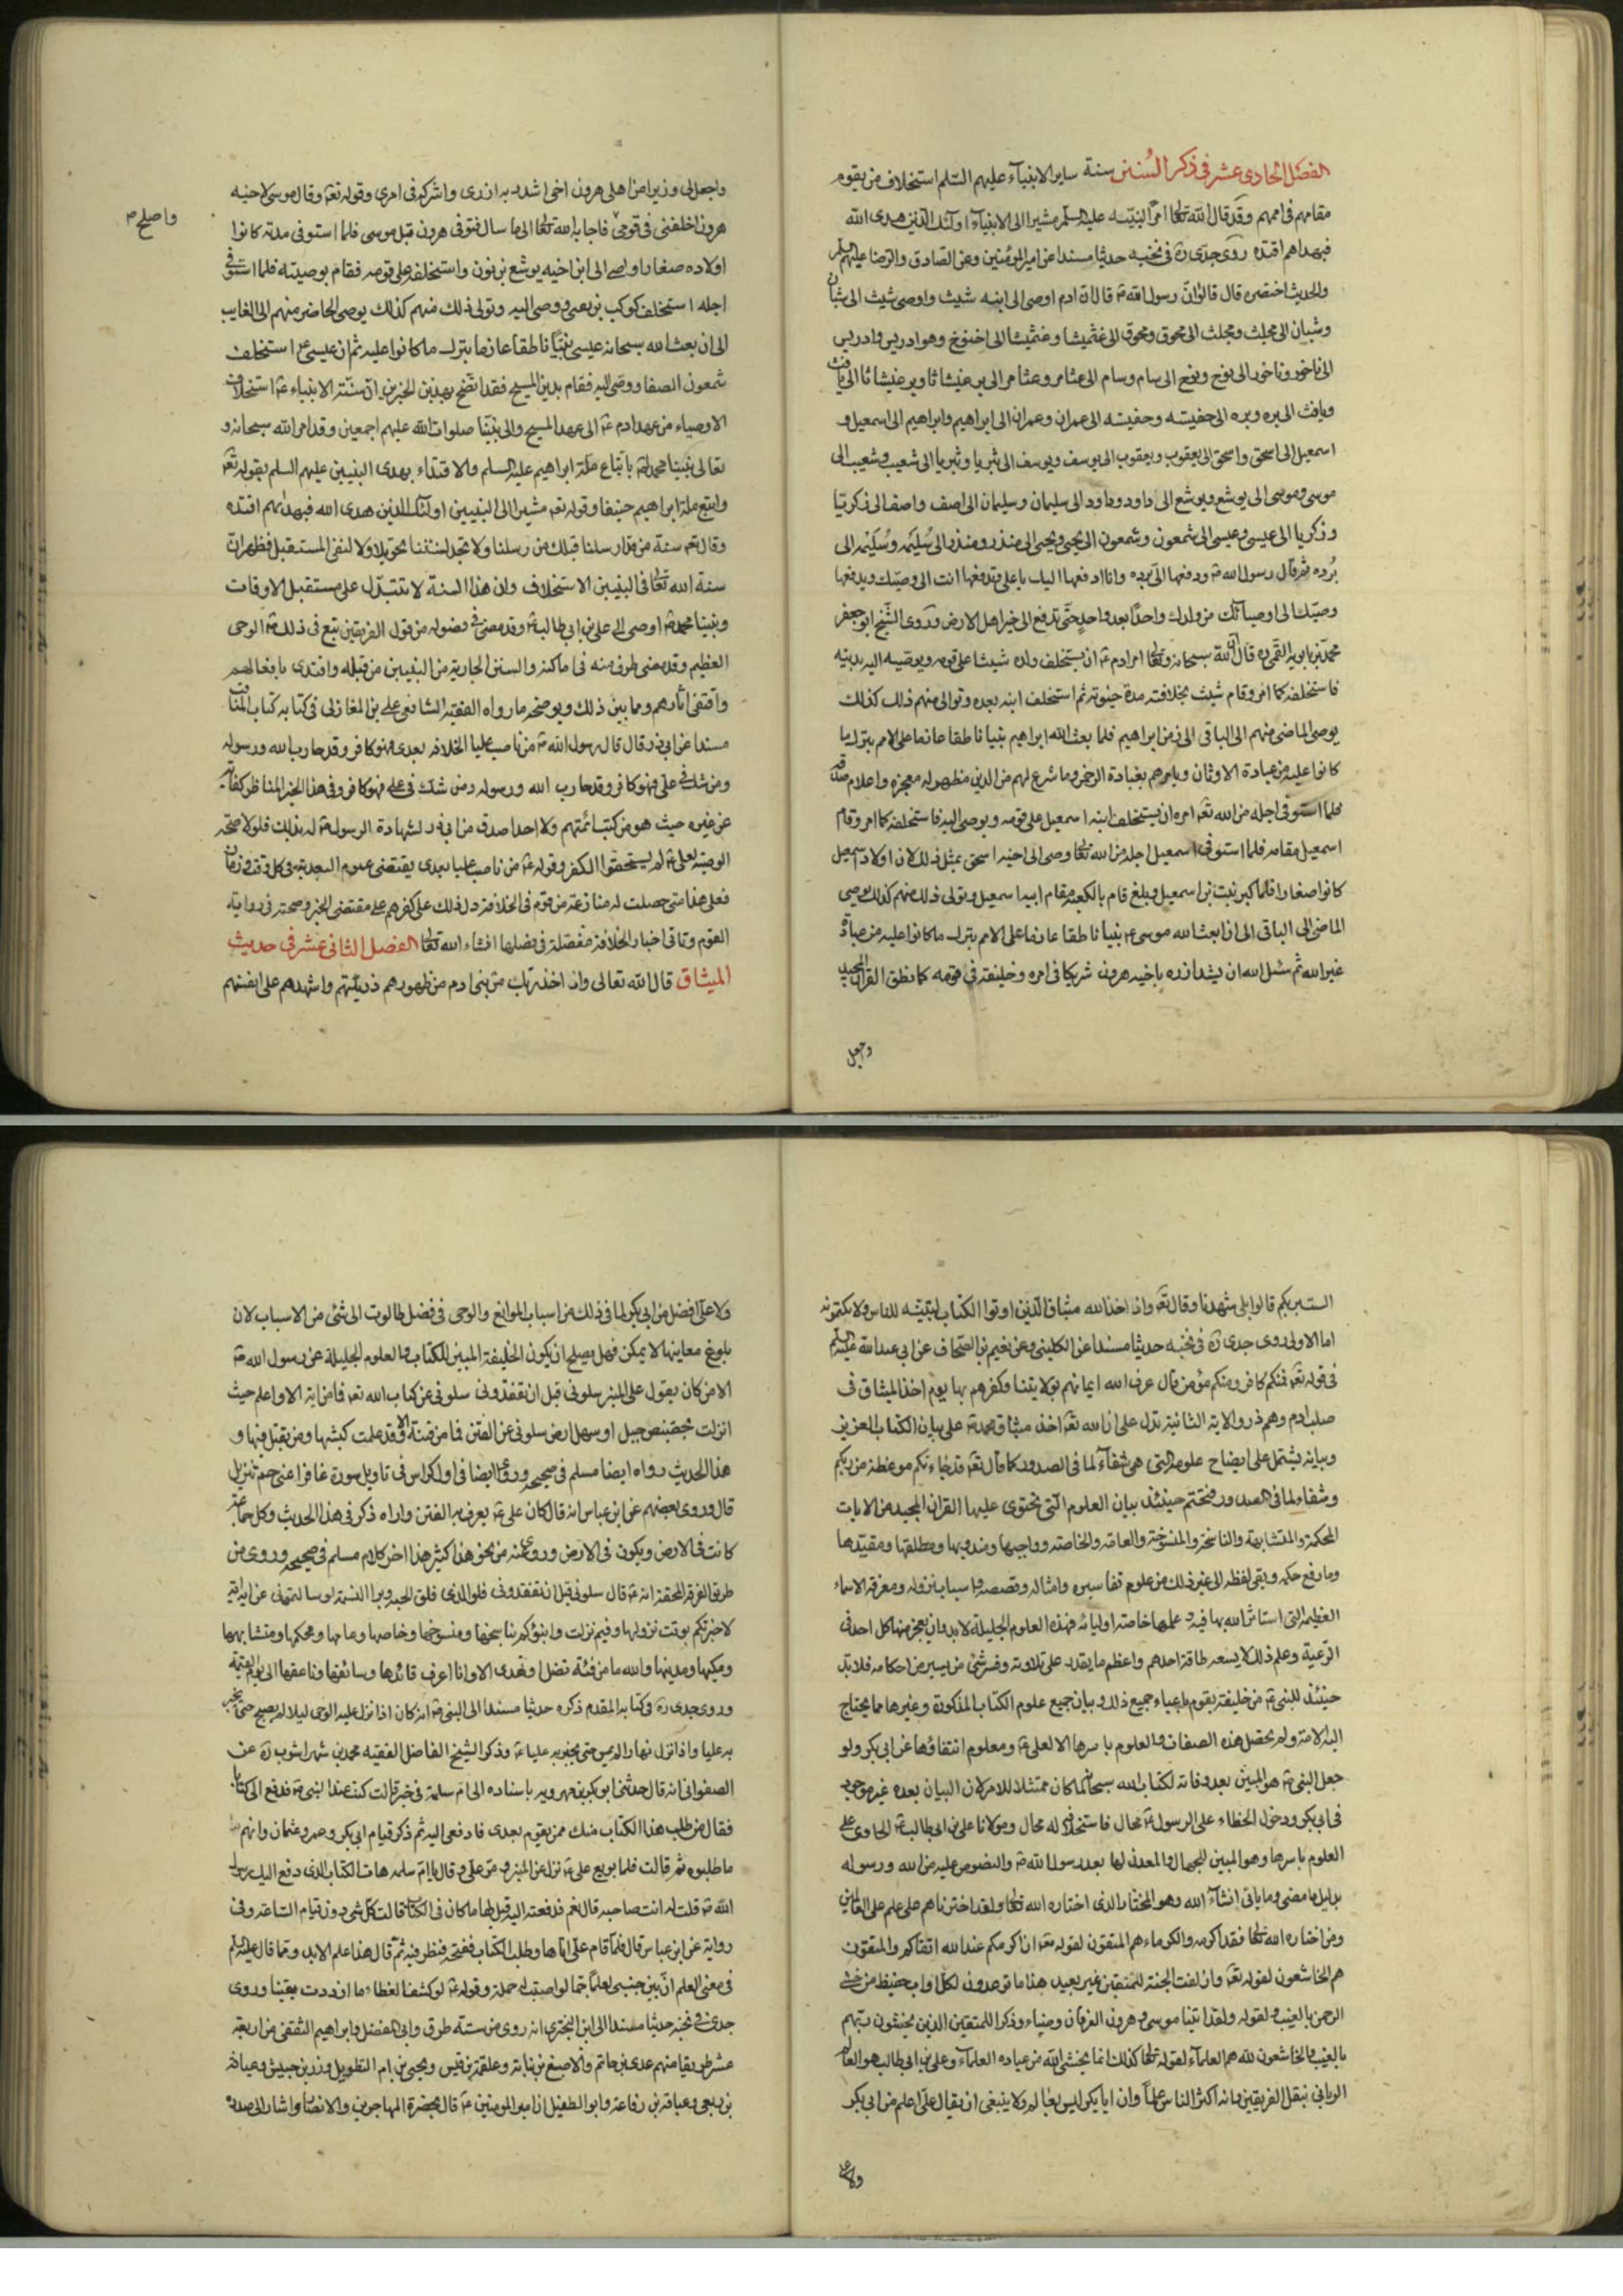 الفصل الحادي عشر في ذكر السنن سنة ساير الانبياء عليهم السلم استخلاف من يقوم
مقامهم في اممهم وقد قال الله تعالى امرا لنبيه عليه السلم مشيرا الى الانبياء اولئك الذين هدى الله
فبهداهم اقتده روى جدي ره في نخبه حديثا مسندا عن امير المؤمنين وعن الصادق والرضا عليهم السلم
والحديث اختصره قال قالوا ان رسول الله ص قال ان ادم اوصى الى ابنه شيث واوصى شيث الى شبان
وشبان الى مجلث ومجلث الى محوق ومحوق الى غثميشا وغثميشا الى اخنوخ وهو ادريس وادريس
الى ناخور وناخور الى نوح ونوح الى سام وسام الى عثامر وعثامر الى برعنيشاثا وبرعنيشاثا الى يافث
ويافث الى بره وبره الى جفيسه وجفيسه الى عمران وعمران الى ابراهيم وابراهيم الى اسمعيل و
اسمعيل الى اسحق واسحق الى يعقوب ويعقوب الى يوسف ويوسف الى بثريا وبثريا الى شعيب وشعيب الى
موسى وموسى الى يوشع ويوشع الى داود وداود الى سليمان وسليمان الى اصف واصف الى زكريا
وزكريا الى عيسى وعيسى الى شمعون وشمعون الى يحيى ويحيى الى منذر ومنذر الى سليمه وسليمه الى
برده ثم قال رسول الله ص ودفعها الي برده وانا ادفعها اليك يا علي وتدفعها انت الى وصيك ويدفعها
وصيك الى اوصيائك من ولدك واحدا بعد واحد حتى تدفع الى خير اهل الارض وروى الشيخ ابو جعفر
محمد بن بابويه القمي ره قال ان الله سبحانه وتعالى امر ادم ع ان يستخلف ولده شيثا على قومه ويوصيه اليه بدينه
فاستخلفه كما امر وقام شيث بخلافته مدة حيوته ثم استخلف ابنه بعده وتوالى منهم ذلك كذلك
يوصي الماضي منهم الى الباقي الى زمن ابراهيم فلما بعث الله ابراهيم نبيا ناطقا عازما على الامم بترك ما
كانوا عليه من عبادة الاوثان ويامرهم بعبادة الرحمن وما شرع لهم من الدين مظهر له معجزه واعلام صدقه
فلما استوفى اجله من الله تعالى امره ان يستخلف ابنه اسمعيل على قومه ويوصي اليه فاستخلفه كما امر وقام
اسمعيل مقامه فلما استوفى اسمعيل اجله من الله تعالى وصى الى اخيه اسحق بمثل ذلك لان اولاد اسمعيل
كانوا صغارا فلما كبر نبت بن اسمعيل وبلغ قام بالكعبة مقام ابيه اسمعيل وتولى ذلك منهم كذلك يوصي
الماضي الى الباقي الى ان بعث الله موسى ع نبيا ناطقا عازما على الامم بترك ما كانوا عليه من عبادة
غير الله ثم سئل الله ان يشد ازره باخيه هرون شريكا في امره وخليفته في قومه كما نطق القران المجيد
وجعل
واجعل لي وزيرا من اهلي هرون اخي اشدد به ازري واشركه في امري وقوله تعالى وقال موسى لاخيه
هرون اخلفني في قومي فاجابه الله تعالى الى ما سال فتوفي هرون قبل موسى فلما استوفى مدته كانوا
واصلح
اولاده صغارا واوصى الى ابن اخيه يوشع بن نون واستخلفه على قومه فقام بوصيته فلما استوفى
اجله استخلف كوكب بن ووصى اليه وتولى ذلك منهم كذلك يوصي الحاضر منهم الى الغايب
الى ان بعث الله سبحانه عيسى نبيا ناطقا عازما بترك ما كانوا عليه ثم ان عيسى ع استخلف
شمعون الصفا ووصى اليه فقام بدين المسيح فقد اتضح بهذين الخبرين ان سنة الانبياء ع استخلاف
الاوصياء من عهد ادم ع الى عهد المسيح والى نبينا صلوات الله عليهم اجمعين وقد امر الله سبحانه و
تعالى نبينا محمد ص باتباع ملة ابراهيم عليه السلم والاقتداء بهدى النبيين عليهم السلم بقوله تعالى
واتبع ملة ابراهيم حنيفا وقوله تعالى مشيرا الى النبيين اولئك الذين هدى الله فبهداهم اقتده
وقال تعالى سنة من قد ارسلنا قبلك من رسلنا ولا تجد لسنتنا تحويلا ولا لنفي المستقبل فظهر ان
سنة الله تعالى في النبيين الاستخلاف وان هذا السنة لا تتبدل على مستقبل الاوقات
ونبينا محمد ص اوصى الى علي بن ابي طالب ع وقد مضى في فصوله من قول الفريقين تبع في ذلك ص الوحي
العظيم وقد مضى طرف منه في اماكنه والسنن الجارية من النبيين من قبله واقتدى بافعالهم
واقتفى اثارهم ومما بين ذلك ويوضحه ما رواه الفقيه الشافعي علي بن المغازلي في كتابه كتاب المناقب
مسندا عن ابي ذر قال قال رسول الله ص من ناصب عليا الخلافة بعدي فهو كافر وقد حارب الله ورسوله
ومن شك في علي فهو كافر وقد حارب الله ورسوله ومن شك في علي فهو كافر وفي هذا الخبر للمناظر كفاية
عن غيره حيث هو من كتب ائمتهم ولا احد اصدق من ابي ذر لشهادة الرسول ص له بذلك فلولا صحة
الوصية لعلي ع لم يستحقوا الكفر وقوله ع من ناصب عليا بعدي يقتضي عموم البعدية في كل وقت وزمان
فعلى هذا متى حصلت له منازعة من قوم في الخلافة دل ذلك على كفرهم على مقتضى الخبر وصحته في رواية
القوم وتاتي اخبار الخلافة مفصلة في فصلها انشاء الله تعالى الفصل الثاني عشر في حديث
الميثاق قال الله تعالى واذ اخذ ربك من بني ادم من ظهورهم ذريتهم واشهدهم على انفسهم
الست بربكم قالوا بلى شهدنا وقال تعالى واذ اخذ الله ميثاق الذين اوتوا الكتاب لتبيننه للناس ولا تكتمونه
اما الاولى روى جدي ره في نخبه حديثا مسندا عن الكليني وعن نعيم بن الصحاف عن ابي عبد الله عليه السلم
في قوله تعالى فمنكم كافر ومنكم مؤمن قال عرف الله ايمانهم بولايتنا وكفرهم بها يوم اخذ الميثاق في
صلب ادم وهم ذر والاية الثانية تدل على ان الله تعالى اخذ ميثاق محمد ص على بيان الكتاب العزيز
وبيانه يشتمل على ايضاح علومه التي هي شفاء لما في الصدور كما قال تعالى قد جاءتكم موعظة من ربكم
وشفاء لما في الصدور فتحتم حينئذ بيان العلوم التي تحتوى عليها القران المجيد من الايات
المحكمة والمتشابهة والناسخة والمنسوخة والعامة والخاصة وواجبها ومندوبها ومطلقها ومقيدها
وما رفع حكمه وبقي لفظه الى غير ذلك من علوم تفاسيره وامثاله وقصصه واسباب نزوله ومعرفة الاسماء
العظيمة التي استاثر الله بها فيه وعلمها خاصة اوليائه فهذه العلوم الجليلة لا بد وان يعجز منها كل احد في
الرعية وعلم ذلك لا يسعه طاقة احدهم واعظم ما يقدر على تلاوته وفسر شئ من يسير من احكامه فلا بد
حينئذ للنبي ص من خليفة يقوم باعباء جميع ذلك وبيان جميع علوم الكتاب المذكورة وغيرها مما يحتاج
اليه الامة ولم يحصل هذه الصفات والعلوم باسرها الا لعلي ع ومعلوم انتفاؤها عن ابي بكر ولو
جعل النبي ص هو المبين بعد وفاته لكتاب الله سبحانه لما كان ممتثلا للامر لان البيان بعده غير موجود
في ابي بكر ودخول الخطاء على الرسول ص محال فاستخلافه له محال ومولانا علي بن ابي طالب ع الحاوي على
العلوم باسرها وهو المبين للجهال والمعدن لها بعد رسول الله ص والمنصوص عليه من الله ورسوله
بدليل ما مضى وما ياتي انشاء الله وهو المختار الذي اختاره الله تعالى ولقد اخترناهم على علم على العالمين
ومن اختاره الله تعالى فقد اكرمه والكرماء هم المتقون لقوله تعالى ان اكرمكم عند الله اتقاكم والمتقون
هم الخاشعون لقوله تعالى وازلفت الجنة للمتقين غير بعيد هذا ما توعدون لكل اواب حفيظ من خشي
الرحمن بالغيب ولقوله ولقد اتينا موسى وهرون الفرقان وضياء وذكرا للمتقين الذين يخشون ربهم
بالغيب والخاشعون لله هم العلماء لقوله تعالى كذلك انما يخشى الله من عباده العلماء وعلي بن ابي طالب هو العالم
الرباني بنقل الفريقين وانه اكثر الناس علما وان ابا بكر ليس بعالم ولا ينبغي ان يقال علي اعلم من ابي بكر
ولا علي
ولا علي افضل من ابي بكر لما في ذلك من اسباب الموانع والوحي في فضل طالوت الى شئ من الاسباب لان
بلوغ معاينها لا يمكن فهل يصلح ان يكون الخليفة المبين للكتاب والعلوم الجليلة عن رسول الله ص
الا من كان يقول على المنبر سلوني قبل ان تفقدوني سلوني عن كتاب الله تعالى فما من اية الا واعلم حيث
انزلت بحضيض جبل او سهل ارض سلوني عن الفتن فما من فتنة الا وقد علمت كبشها ومن يقتل فيها و
هذا الحديث رواه ايضا مسلم في صحيحه وروى ايضا في اول كراس في تاويل سورة غافر اعني حم تنزيل
قال وروى بعضهم عن ابن عباس انه قال كان علي ع يعرف به الفتن واراه ذكر في هذا الحديث وكل جماعة
كانت في الارض ويكون في الارض وروى عنه من نحو هذا كثير هذا اخر كلام مسلم في صحيحه وروى من
طريق الفرقة المحقة انه ع قال سلوني قبل ان تفقدوني فلو الذي فلق الحبة وبرا النسمة لو سالتموني عن اية اية
لاخبرتكم بوقت نزولها وفيم نزلت وانبؤكم بناسخها ومنسوخها وخاصها وعامها ومحكمها ومتشابهها
ومكيها ومدنيها والله ما من فئة تضل او تهدى الا وانا اعرف قائدها وسائقها وناعقها الى يوم القيمة
وروى جدي ره في كتابه المقدم ذكره حديثا مسندا الى النبي ص انه كان اذا نزل عليه الوحي ليلا لم يصبح حتى يخبر
به عليا واذا نزل نهارا لم يمس حتى يخبر به عليا ع وذكر الشيخ الفاضل الفقيه محمد بن شهراشوب ره عن
الصفواني انه قال حدثني ابو بكر بن مهرويه باسناده الى ام سلمة في خبر قالت كنت عند النبي ص فدفع الي كتابا
فقال من طلب هذا الكتاب منك ممن يقوم بعدي فادفعي اليه ثم ذكر قيام ابي بكر وعمر وعثمان وانهم
ما طلبوه ثم قالت فلما بويع علي ع نزل عن المنبر ومر علي وقال يا ام سلمة هات الكتاب الذي دفع اليك رسول
الله ص قلت له انت صاحبه قال نعم فدفعته اليه قيل لها ما كان في الكتاب قالت كل شئ دون قيام الساعة وفي
رواية عن ابن عباس قال فلما قام علي اتاها وطلب الكتاب ففتحه فنظر فيه ثم قال هذا علم الابد ومما قال عليه السلم
في معنى العلم ان بين جنبي لعلما جما لو اصبت له حملة وقوله ع لو كشف الغطاء ما ازددت يقينا وروى
جدي في نخبه حديثا مسندا الى ابن البختري انه روى من ستة طرق وابي المفضل وابراهيم الثقفي من اربعة
عشر طريقا منهم عدي بن حاتم والاصبغ بن نباتة وعلقمة بن قيس ويحيى بن ام الطويل وزر بن حبيش وعباية
بن ربعي وعباية بن رفاعة وابو الطفيل ان امير المؤمنين ع قال بحضرة المهاجرين والانصار واشار الى صدره